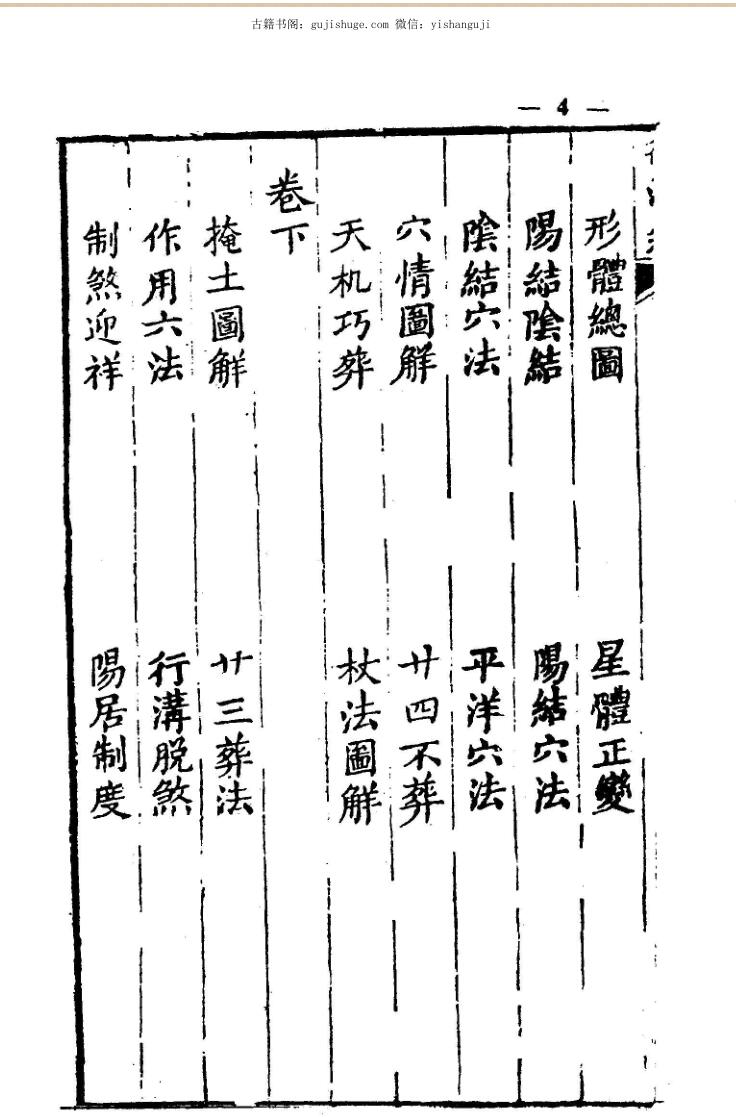 古籍书阁：gujishuge.com 微信：yishanguji
— 4 —
形體總圖 星體正變
陽結陰結 陽結穴法
陰結穴法 平洋穴法
穴情圖解 廿四不葬
天机巧葬 杖法圖解
卷下
掩土圖解 廿三葬法
作用六法 行溝脱煞
制煞迎祥 陽居制度